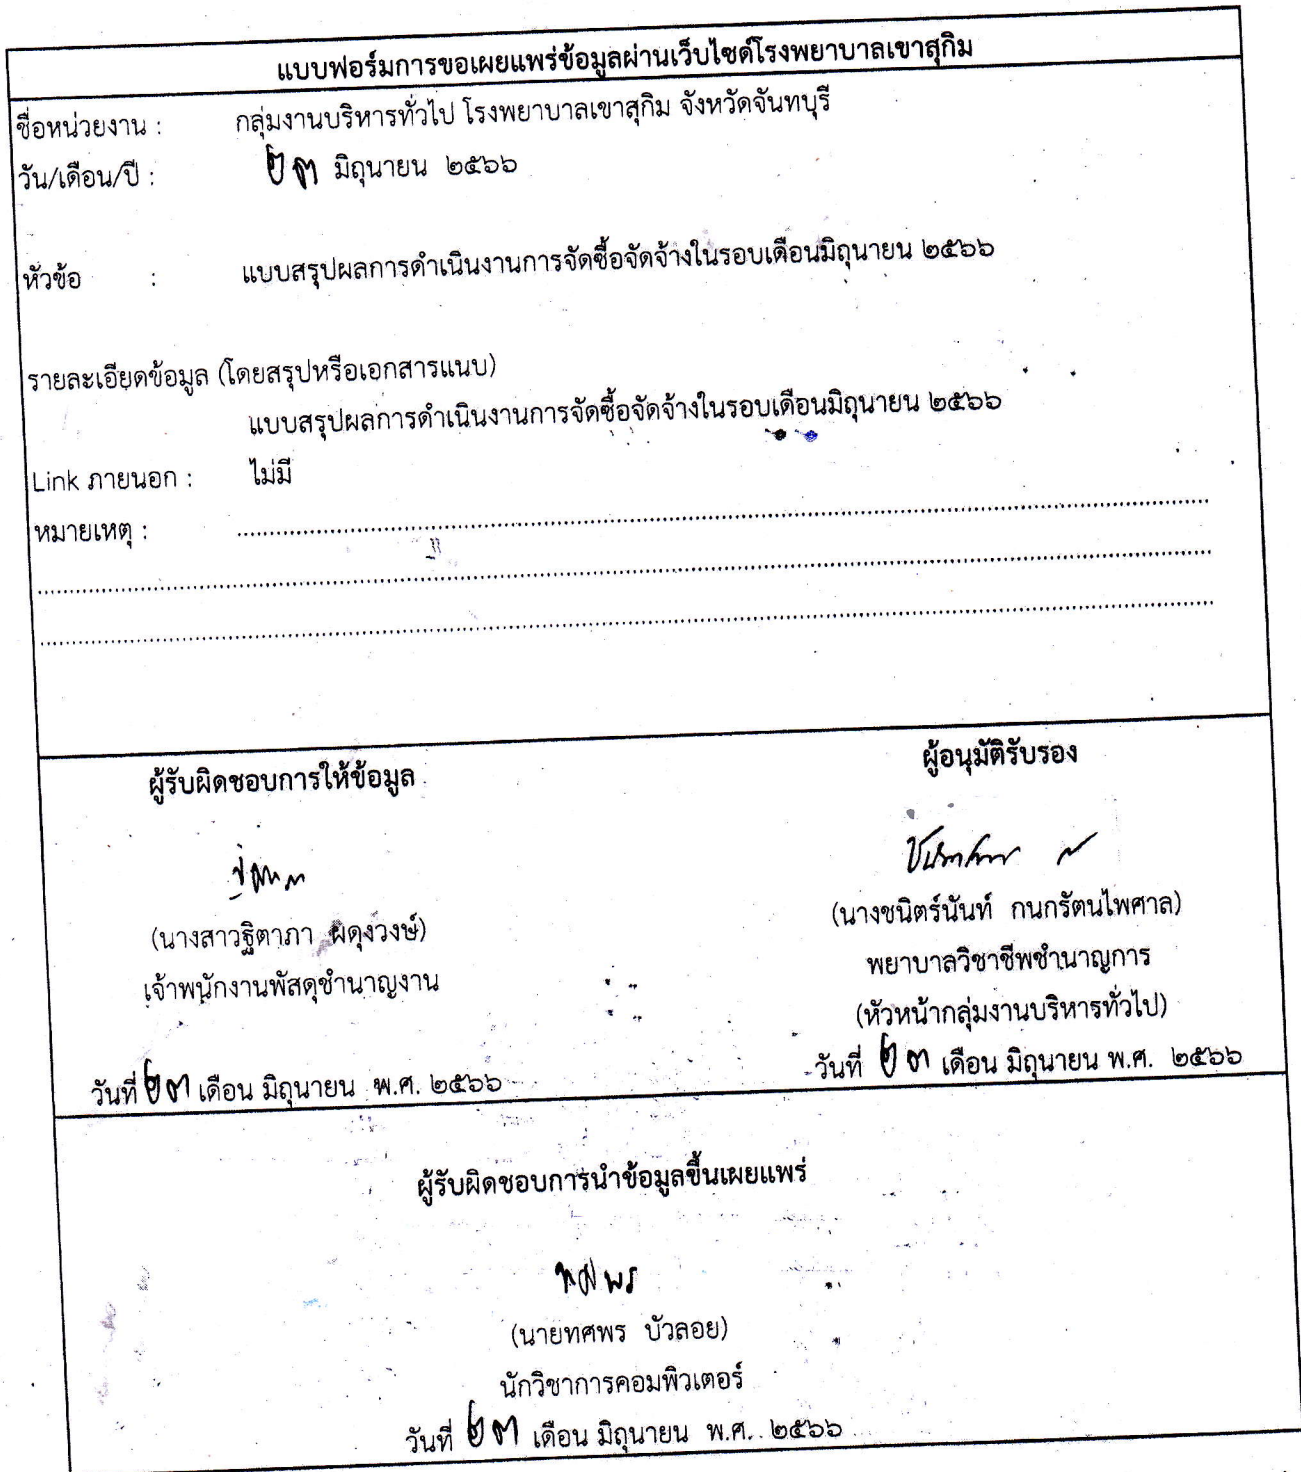 แบบฟอร์มการขอเผยแพร่ข้อมูลผ่านเว็บไซด์โรงพยาบาลเขาสุกิม
ชื่อหน่วยงาน : กลุ่มงานบริหารทั่วไป โรงพยาบาลเขาสุกิม จังหวัดจันทบุรี
วัน/เดือน/ปี : ๒๓ มิถุนายน ๒๕๖๖
หัวข้อ : แบบสรุปผลการดำเนินงานการจัดซื้อจัดจ้างในรอบเดือนมิถุนายน ๒๕๖๖
รายละเอียดข้อมูล (โดยสรุปหรือเอกสารแนบ)
แบบสรุปผลการดำเนินงานการจัดซื้อจัดจ้างในรอบเดือนมิถุนายน ๒๕๖๖
Link ภายนอก : ไม่มี
หมายเหตุ :
ผู้รับผิดชอบการให้ข้อมูล
(นางสาวฐิตาภา ผดุงวงษ์)
เจ้าพนักงานพัสดุชำนาญงาน
วันที่ ๒๓ เดือน มิถุนายน พ.ศ. ๒๕๖๖
ผู้อนุมัติรับรอง
(นางชนิตร์นันท์ กนกรัตนไพศาล)
พยาบาลวิชาชีพชำนาญการ
(หัวหน้ากลุ่มงานบริหารทั่วไป)
วันที่ ๒๓ เดือน มิถุนายน พ.ศ. ๒๕๖๖
ผู้รับผิดชอบการนำข้อมูลขึ้นเผยแพร่
ทศพร
(นายทศพร บัวลอย)
นักวิชาการคอมพิวเตอร์
วันที่ ๒๓ เดือน มิถุนายน พ.ศ. ๒๕๖๖